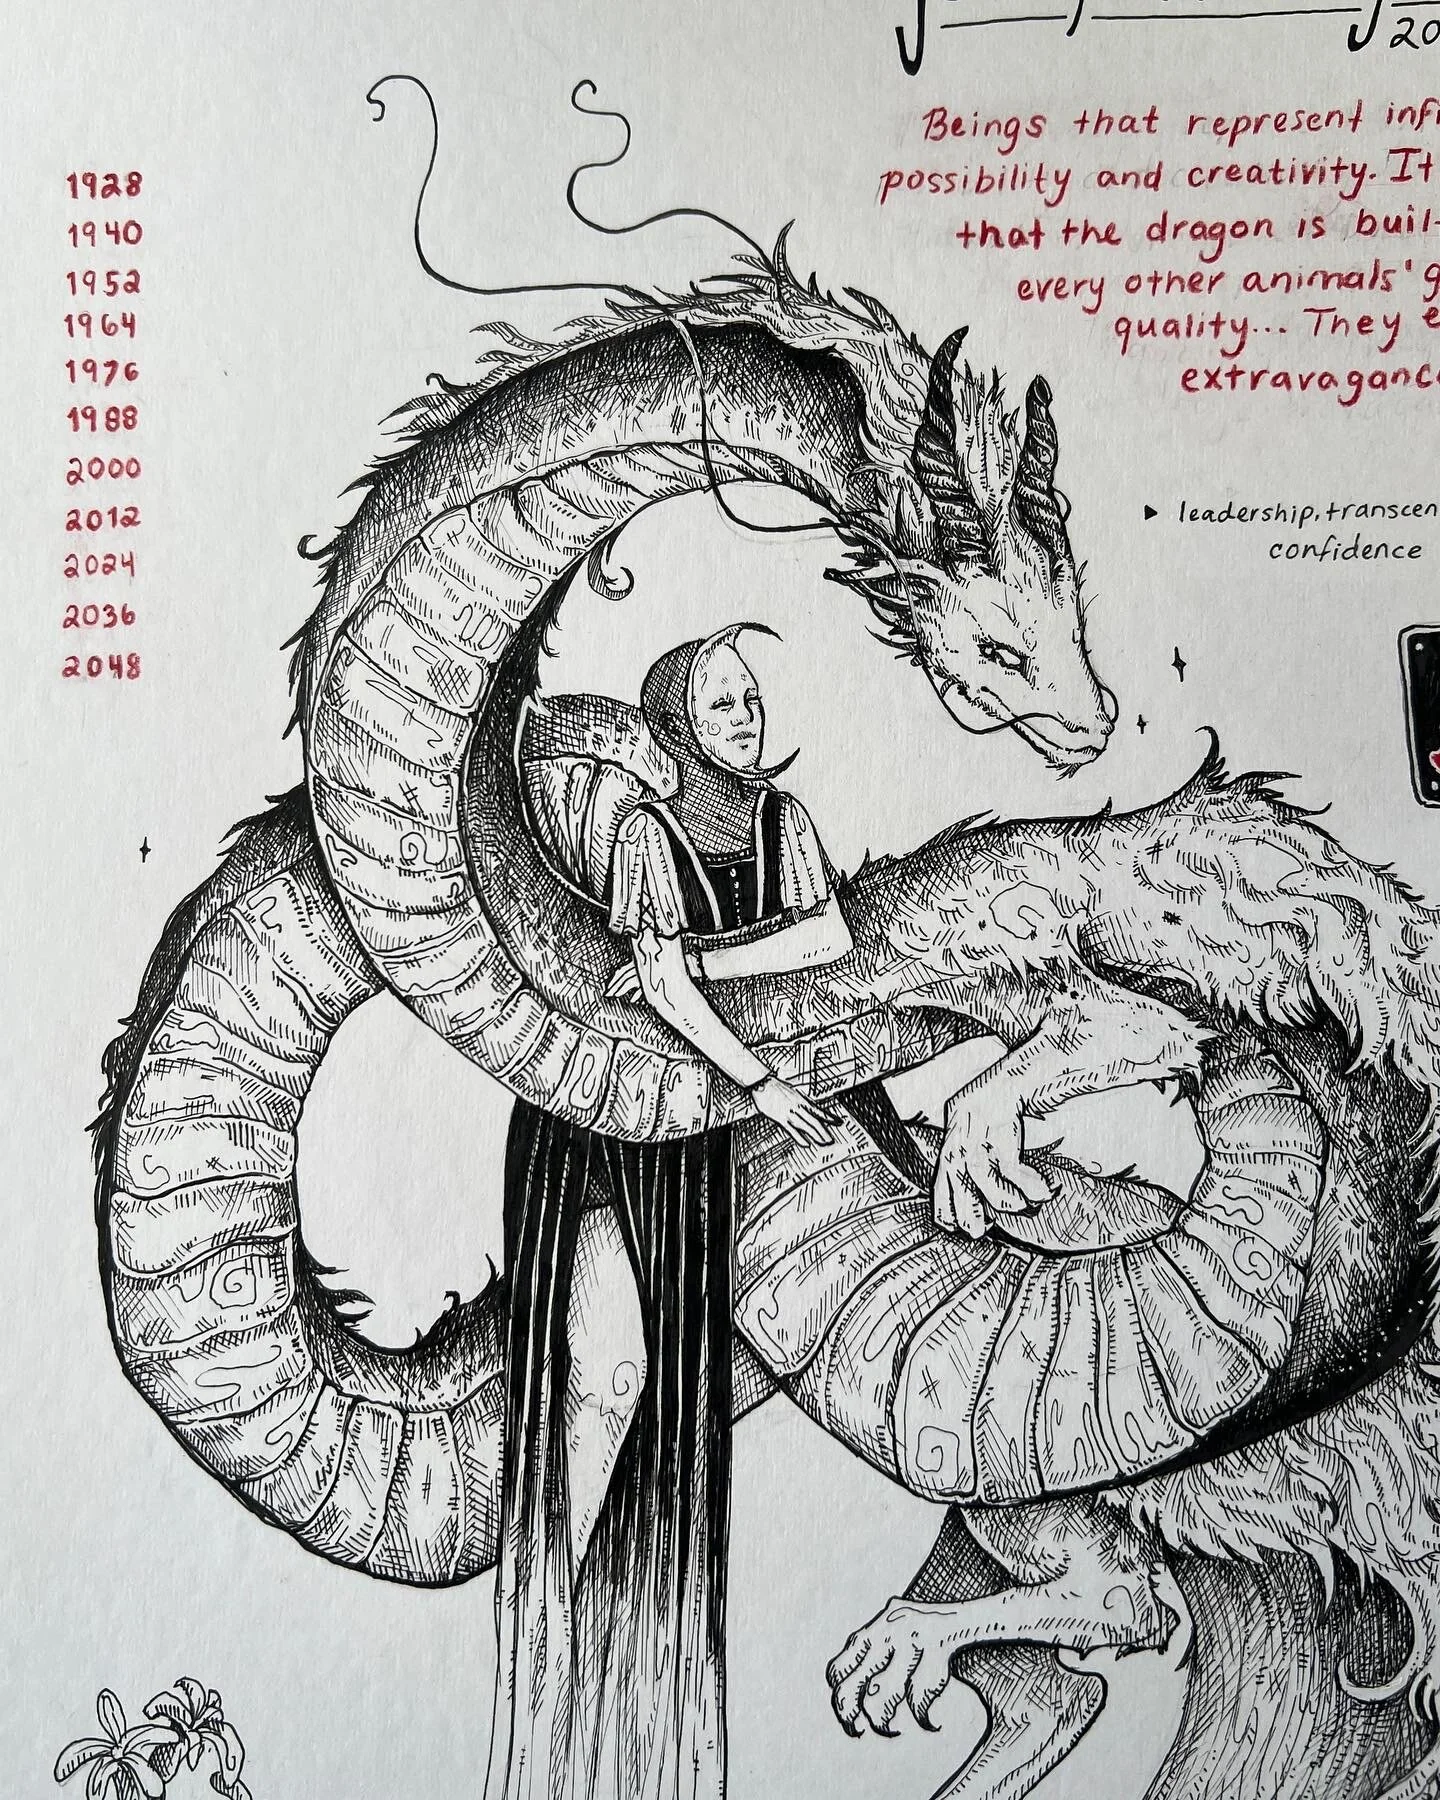 20
1928
1940
1952
1964
1976
1988
2000
2012
2024
2036
2048
Beings that represent
possibility and creativity. It
that the dragon is
every other animals'
quality... They
▸ leadership, transcen
confidence